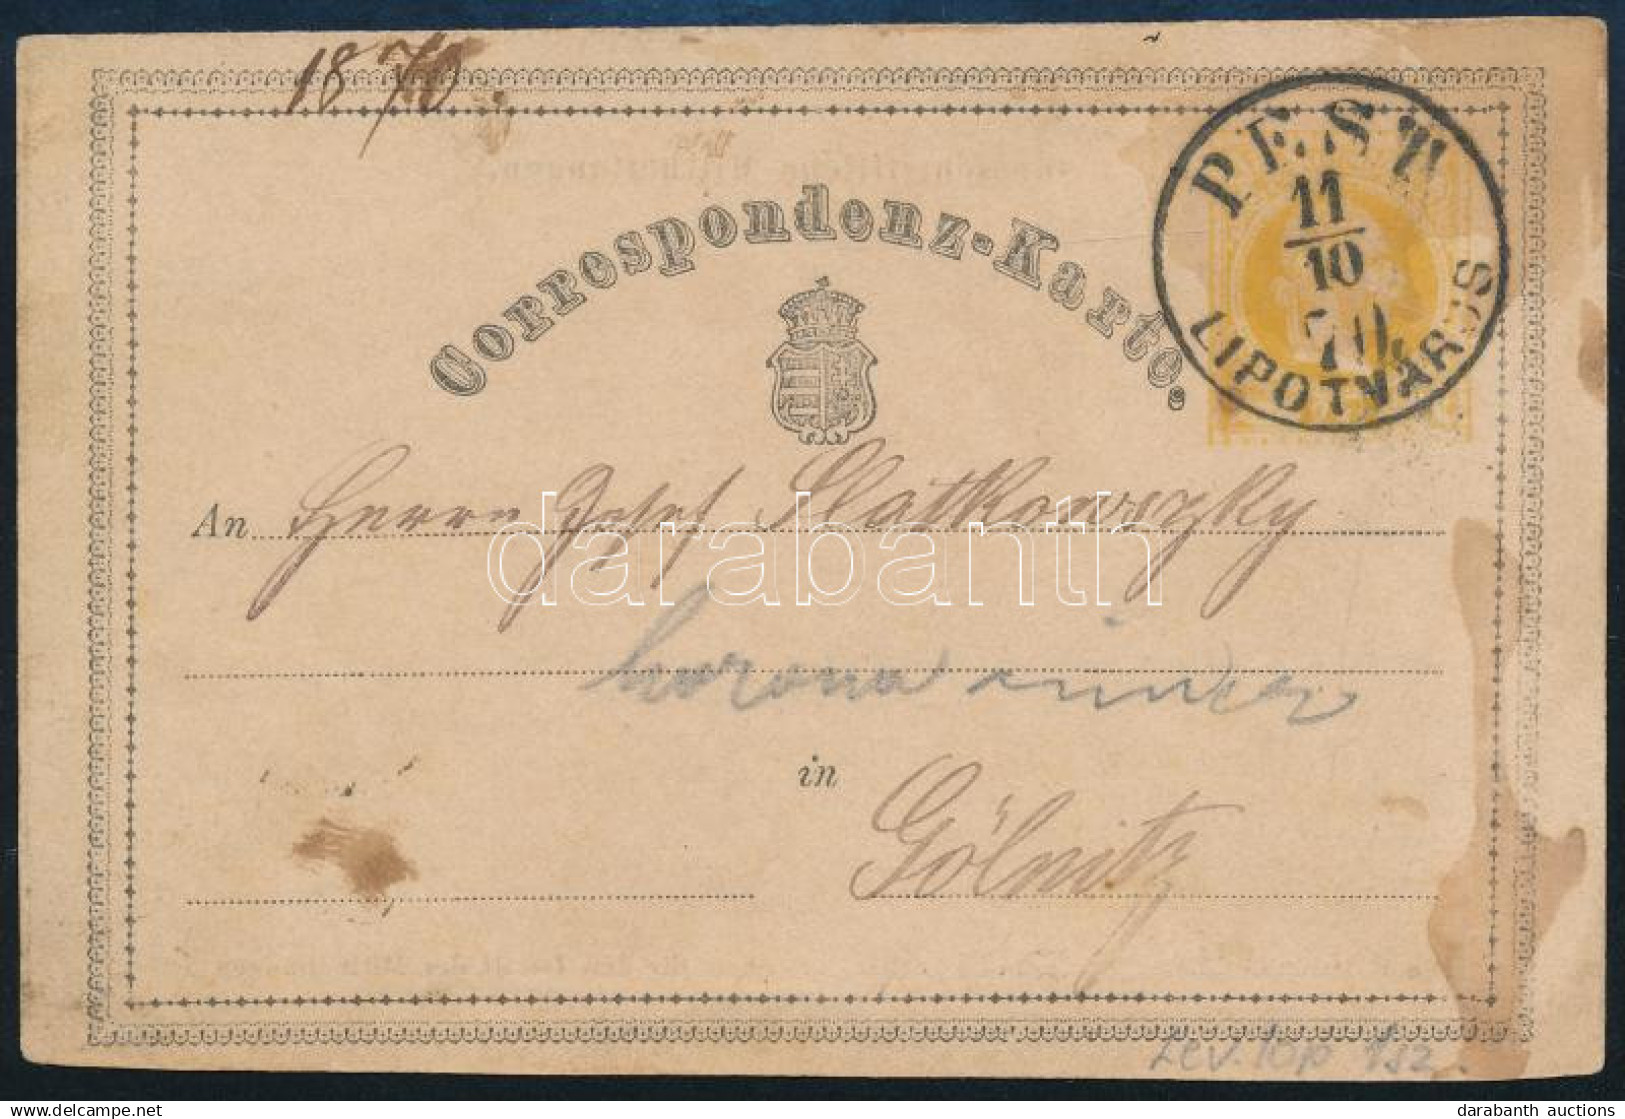 1870.
Correspondenz-Karte.
PEST
11
10
70.
LIPOTVÁROS
An Herrn Josef Slatkowszky
darabanth
korona
in
Gölnitz
Lev. 10p
darabanth auctions
www.delcampe.net